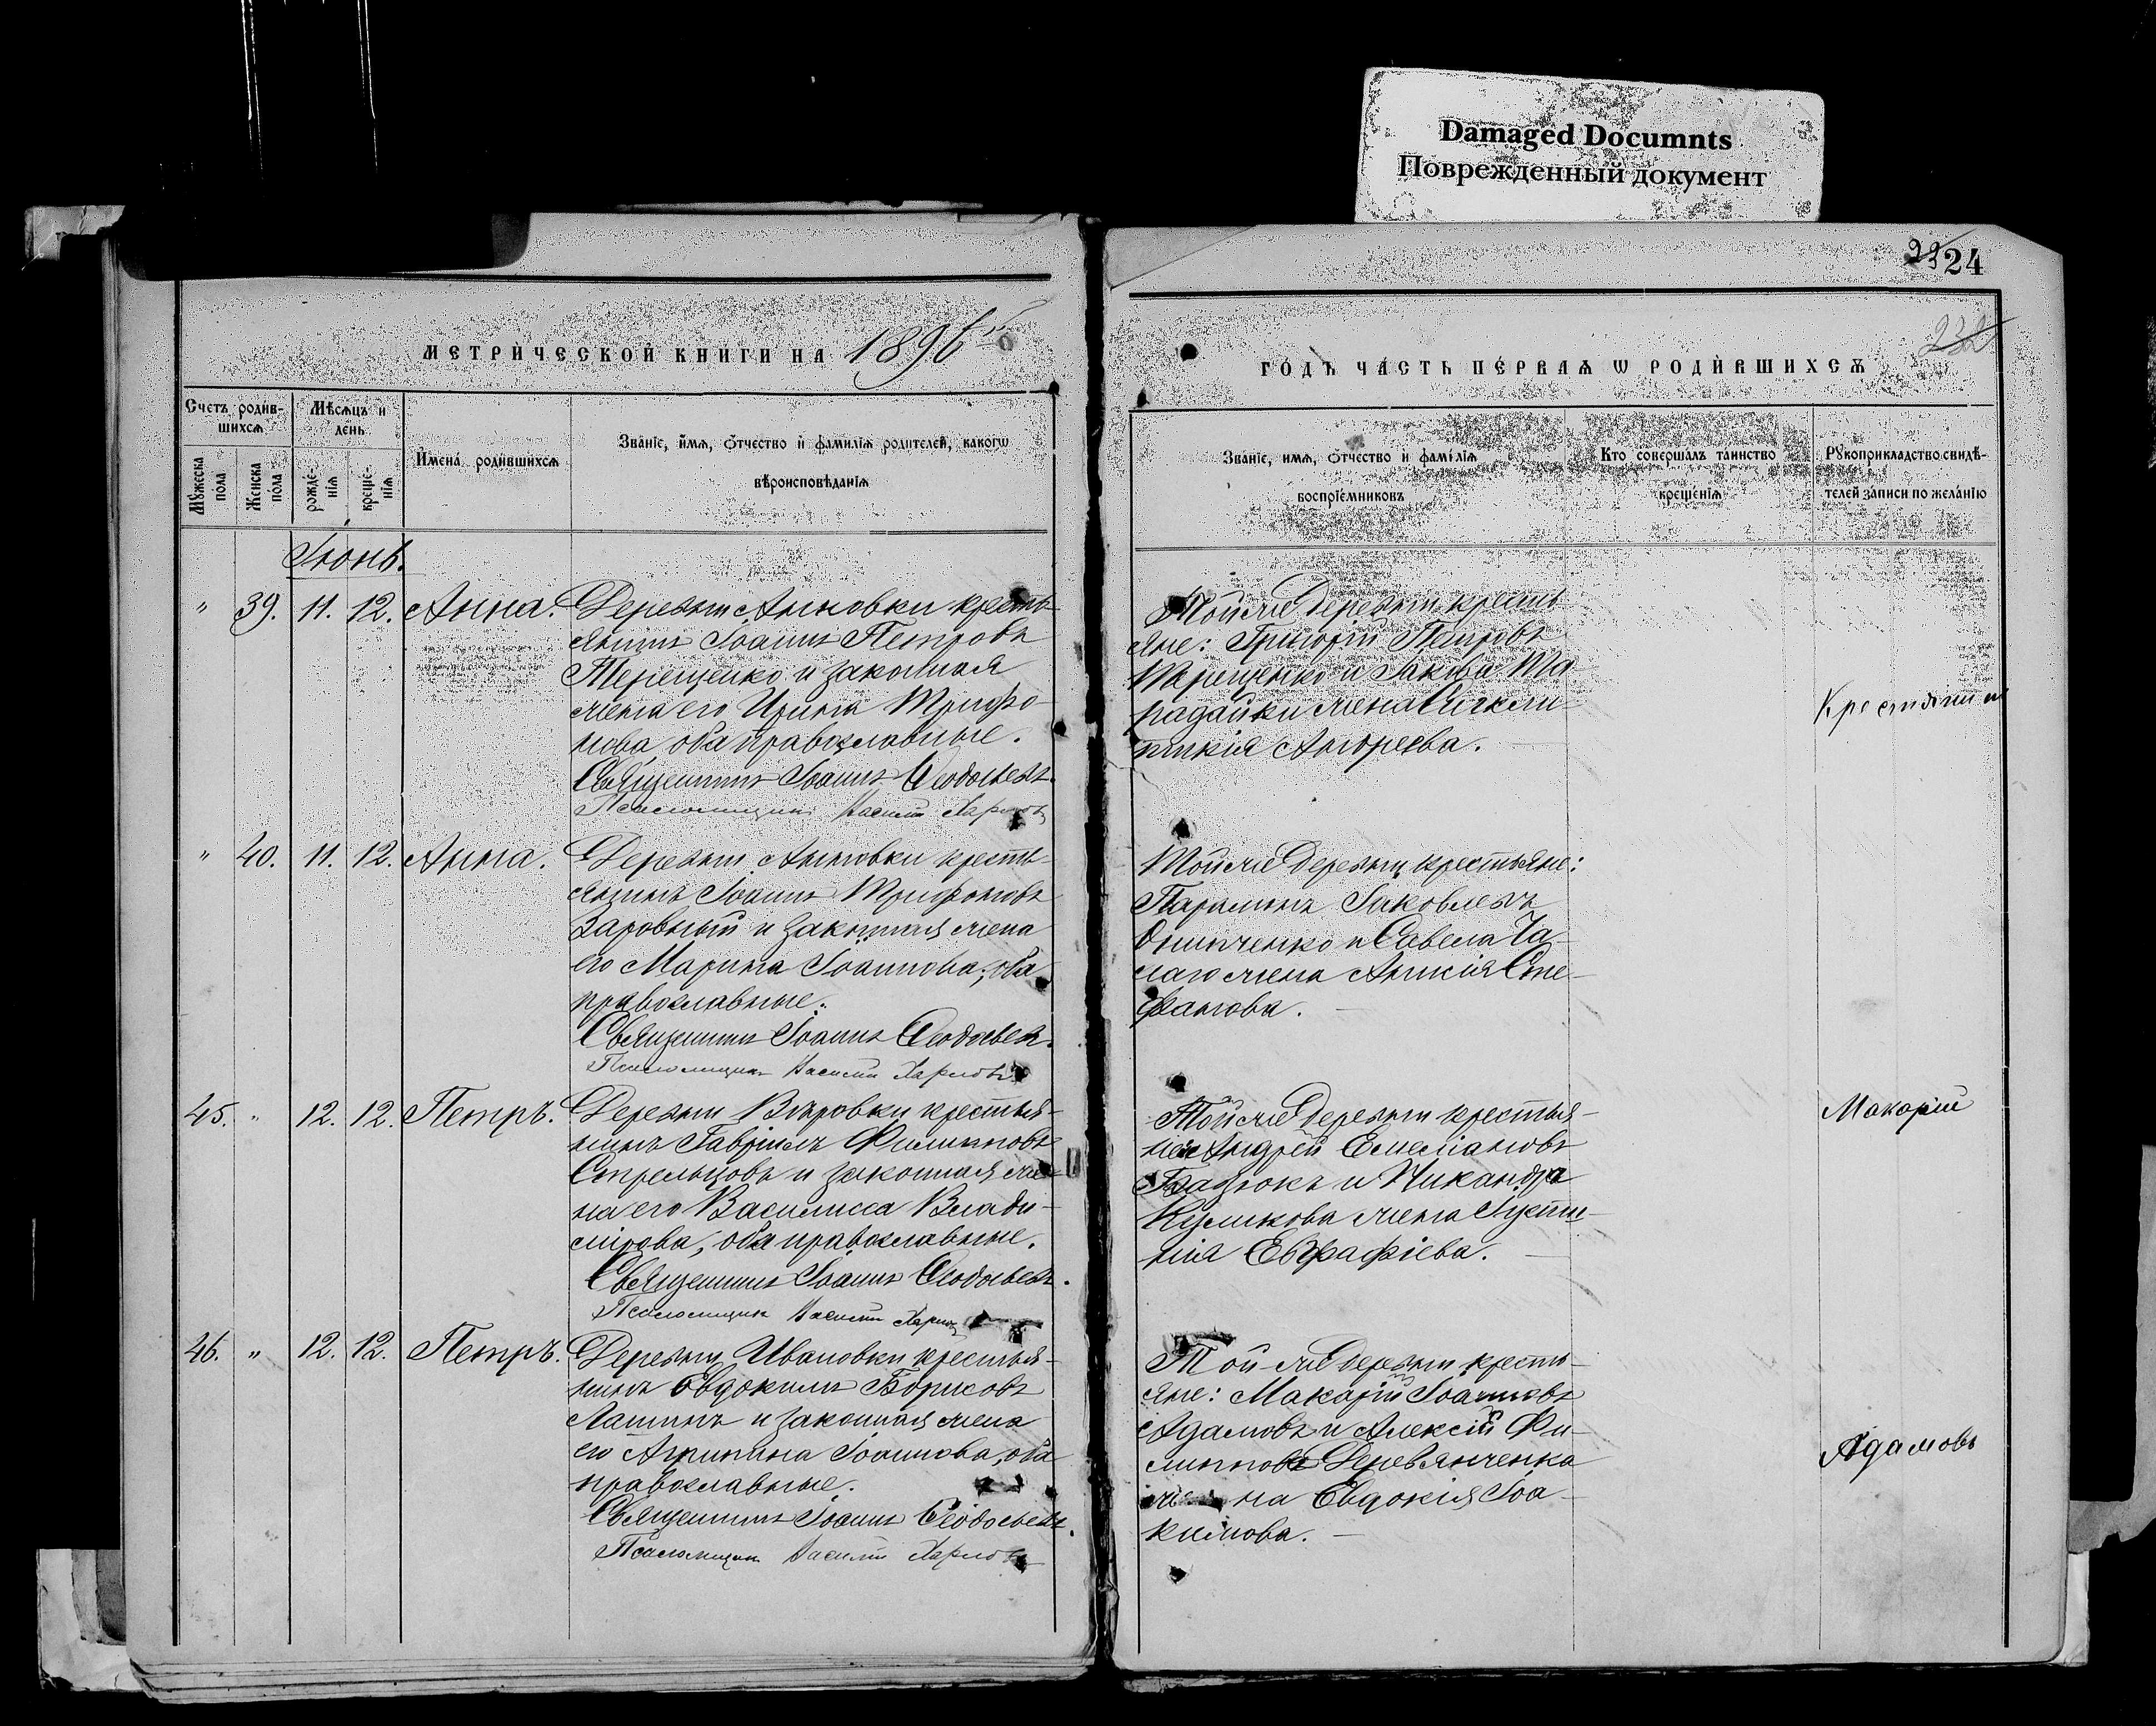 Damaged Documnts
Поврежденный документ
24
МЕТРИЧЕСКОЙ КНИГИ НА 1896
ГОДЪ ЧАСТЬ ПЕРВАЯ Ѡ РОДИВШИХСЯ
Счетъ родив-
шихся
Мѣсяцъ и
день
Мужеска
пола
Женска
пола
рожде-
нія
креще-
нія
Имена родившихся
Званіе, имя, отчество и фамилія родителей, какогѡ
вѣроисповѣданія
Званіе, имя, отчество и фамилія
воспріемниковъ
Кто совершалъ таинство
крещенія
Рукоприкладство свидѣ-
телей записи по желанію
Іюнь.
" 39. 11. 12. Анна. Деревни Анновки кресть-
янинъ Іоаннъ Петровъ
Терещенко и законная
жена его Ирина Трифо-
нова, оба православные.
Священникъ Іоаннъ Ѳеодосьевъ.
Псаломщикъ Василій
Той же деревни кресть
яне: Григорій Петровъ
Терещенко и Іакова
жена
Андреева.
" 40. 11. 12. Анна. Деревни Анновки кресть-
янинъ Іоаннъ Трифоновъ
и законная жена
его Марина Іоаннова, оба
православные.
Священникъ Іоаннъ Ѳеодосьевъ.
Псаломщикъ Василій
Той же деревни крестьяне:
Іаковлевъ
и Савела
жена Анисія Сте-
фанова.
45. " 12. 12. Петръ. Деревни Вѣровки крестья-
нинъ Гавріилъ Филипповъ
Стрельцовъ и законная же-
на его Василисса Влади-
мірова, оба православные.
Священникъ Іоаннъ Ѳеодосьевъ.
Псаломщикъ Василій
Той же деревни крестья-
не: Андрей Емеліановъ
и Никандра
Куликова жена Іусти-
нія Евграфіева.
Макарій
46. " 12. 12. Петръ. Деревни Ивановки крестья-
нинъ Евдокимъ Борисовъ
Лашинъ и законная жена
его Агрипина Іоаннова, оба
православные.
Священникъ Іоаннъ Ѳеодосьевъ.
Псаломщикъ Василій
Той же деревни кресть-
яне: Макарій Іоанновъ
Адамовъ и Алексій Фи-
липповъ Деревянченка
на Евдокія Іоа-
кимова.
Адамовъ